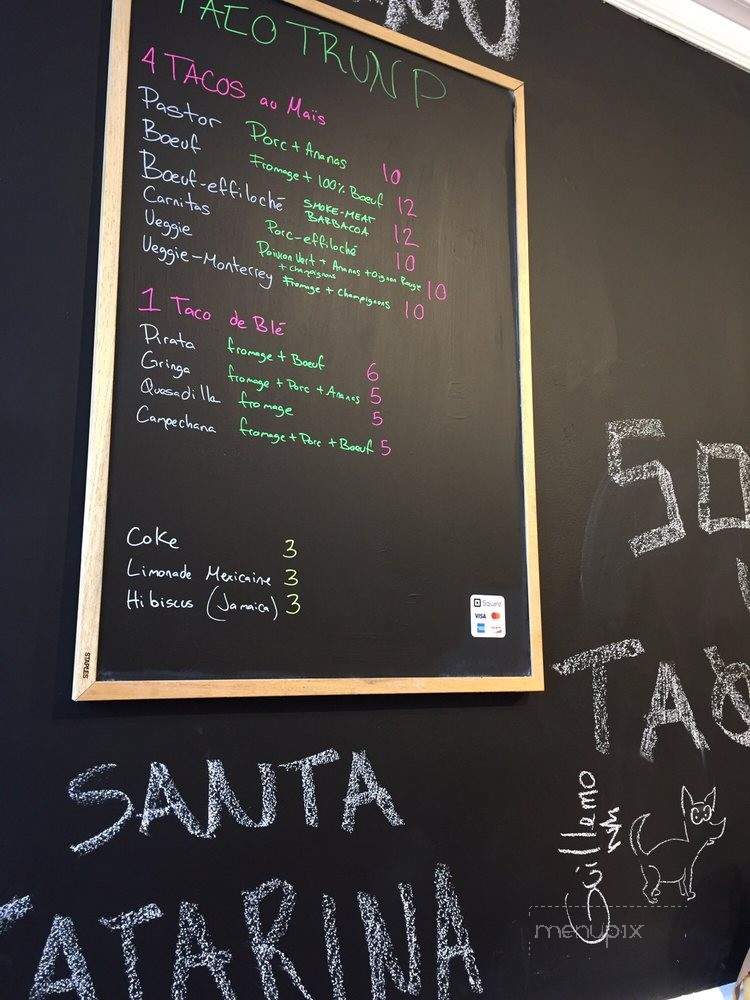 TACO TRUNP
4 TACOS au Maïs
Pastor Porc + Ananas 10
Boeuf Fromage + 100% Boeuf 12
Boeuf-effiloché SMOKE-MEAT BARBACOA 12
Carnitas Porc-effiloché 10
Veggie Poivron Vert + Ananas + Oignon Rouge + champignons 10
Veggie-Monterrey Fromage + Champignons 10
1 Taco de Blé
Pirata fromage + Boeuf 6
Gringa fromage + Porc + Ananas 5
Quesadilla fromage 5
Campechana fromage + Porc + Boeuf 5
Coke 3
Limonade Mexicaine 3
Hibiscus (Jamaica) 3
Square
VISA
STAPLES
SANTA
CATARINA
SO
TAC
Guillermo
menupix